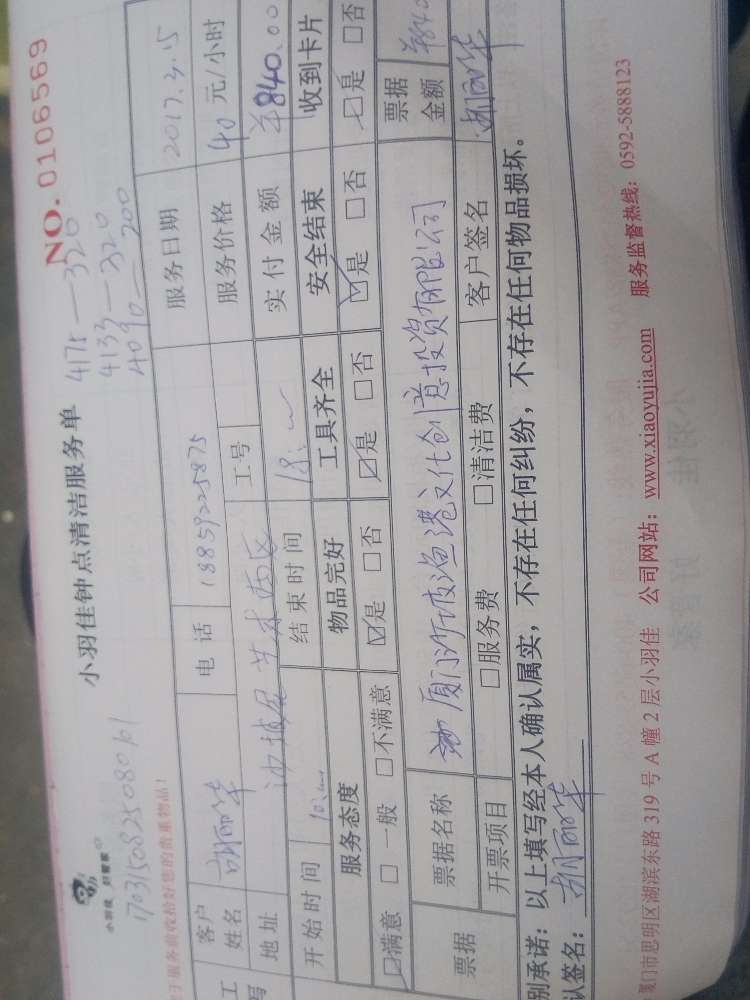 小羽佳 好管家
小羽佳钟点清洁服务单
NO. 0106569
17031508250801
4175—320
4133—320
4090—200
于服务前收拾好您的贵重物品!
工
写
客户姓名 胡丽华 电话 18859225875 服务日期 2017.3.15
地址 艺术西区 工号 服务价格 40 元/小时
开始时间 10: 结束时间 18: 实付金额 ¥840.00
服务态度 物品完好 工具齐全 安全结束 收到卡片
☑满意 □一般 □不满意 ☑是 □否 ☑是 □否 ☑是 □否 ☑是 □否
票据 票据名称 厦门沙坡渔港文化创意投资有限公司 票据金额 ¥840
开票项目 □服务费 □清洁费 客户签名 胡丽华
别承诺:以上填写经本人确认属实,不存在任何纠纷,不存在任何物品损坏。
认签名:胡丽华
厦门市思明区湖滨东路 319 号 A 幢 2 层小羽佳 公司网站:www.xiaoyujia.com 服务监督热线:0592-5888123